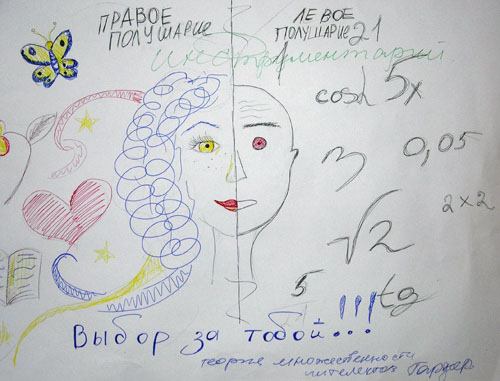 ПРАВОЕ
ПОЛУШАРИЕ
ЛЕВОЕ
ПОЛУШАРИЕ 21
инструментарий
cosα 5x
3
0,05
2×2
√2
5
tg
Выбор за тобой...!!!
теория множественности
интеллектов Гарднер